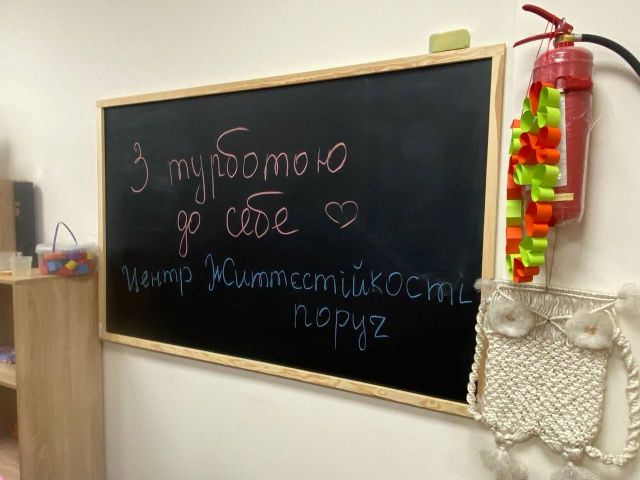 З турботою
до себе ♡
Центр Життєстійкость
поруч